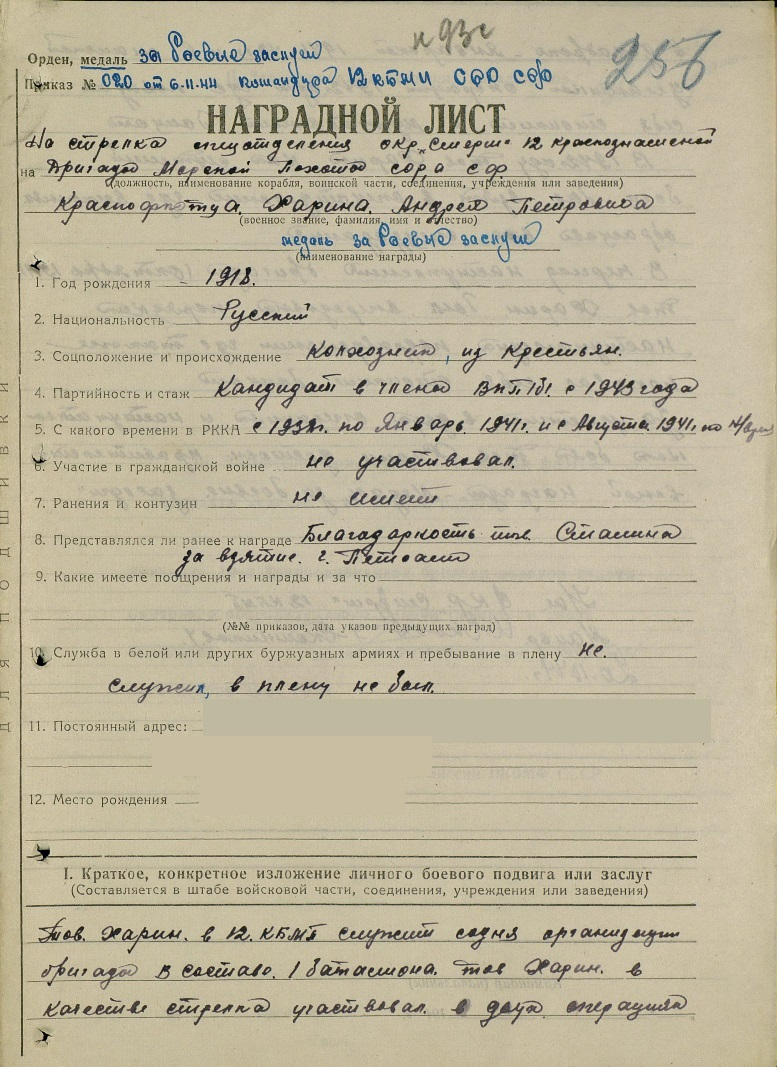 n 93с
256
Орден, медаль за Боевые заслуги
Приказ № 020 от 6-11-44 командира 12 КБМП СОР СФ
НАГРАДНОЙ ЛИСТ
На стрелка отделения ОКР "Смерш" 12 Краснознаменной
на Бригады Морской Пехоты СОРа СФ
(должность, наименование корабля, воинской части, соединения, учреждения или заведения)
Краснофлотца Харина Андрея Петровича
(военное звание, фамилия, имя и отчество)
медаль за Боевые заслуги
(наименование награды)
1. Год рождения 1918.
2. Национальность Русский
3. Соцположение и происхождение Колхозник, из крестьян.
4. Партийность и стаж Кандидат в члены ВКП(б). с 1943 года
5. С какого времени в РККА по Январь 1941г. и с Августа 1941г. по н/время
6. Участие в гражданской войне не участвовал.
7. Ранения и контузии не имеет
8. Представлялся ли ранее к награде Благодарность тов. Сталина
за взятие г. Петсамо
9. Какие имеете поощрения и награды и за что
(№№ приказов, дата указов предыдущих наград)
10. Служба в белой или других буржуазных армиях и пребывание в плену не.
служил, в плену не был.
11. Постоянный адрес:
12. Место рождения
I. Краткое, конкретное изложение личного боевого подвига или заслуг
(Составляется в штабе войсковой части, соединения, учреждения или заведения)
Тов. Харин. в 12. КБМП служит со дня организации
бригады в составе 1 батальона. тов Харин. в
качестве стрелка участвовал в двух операциях
ДЛЯ ПОДШИВКИ